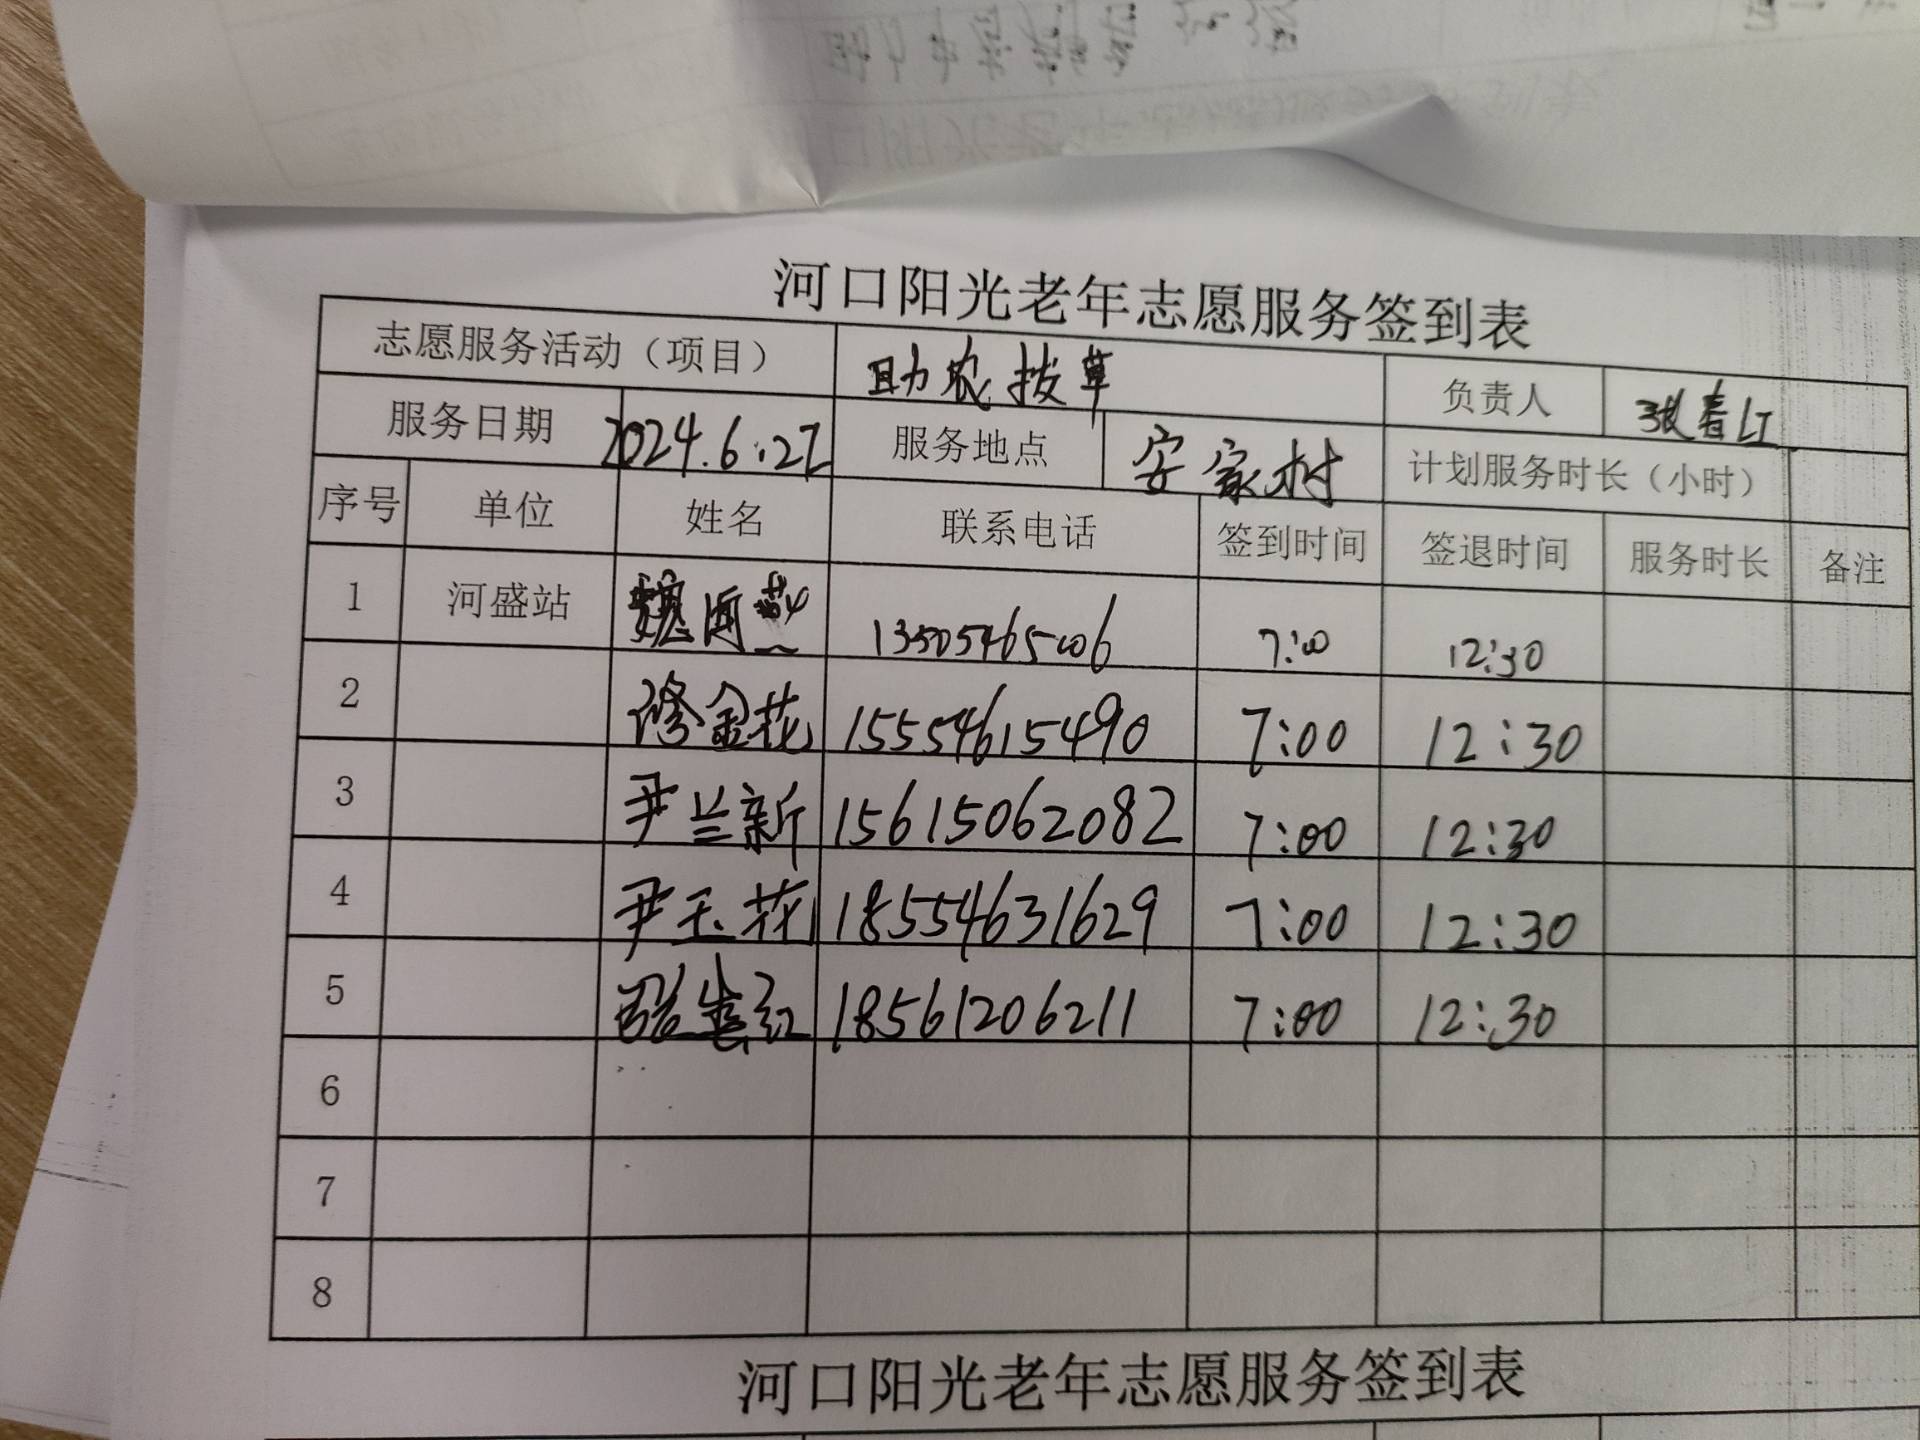 河口阳光老年志愿服务签到表
志愿服务活动（项目） 助农拔草 负责人 张春红
服务日期 2024.6.27 服务地点 安家村 计划服务时长（小时）
序号 单位 姓名 联系电话 签到时间 签退时间 服务时长 备注
1 河盛站 魏河燕 13505465006 7:00 12:30
2 修金花 15554615490 7:00 12:30
3 尹兰新 15615062082 7:00 12:30
4 尹玉花 18554631629 7:00 12:30
5 红 18561206211 7:00 12:30
6
7
8
河口阳光老年志愿服务签到表